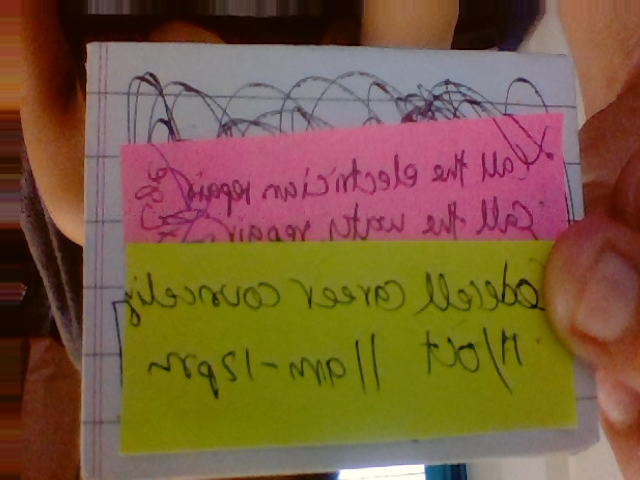 Call the electrician repair
Call the water repair
career counseling
17/Oct 11am-12pm